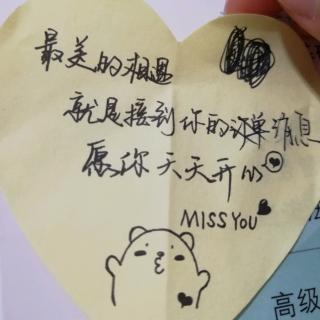 最美的相遇
就是接到你的订单消息
愿你天天开心
MISS YOU
高级